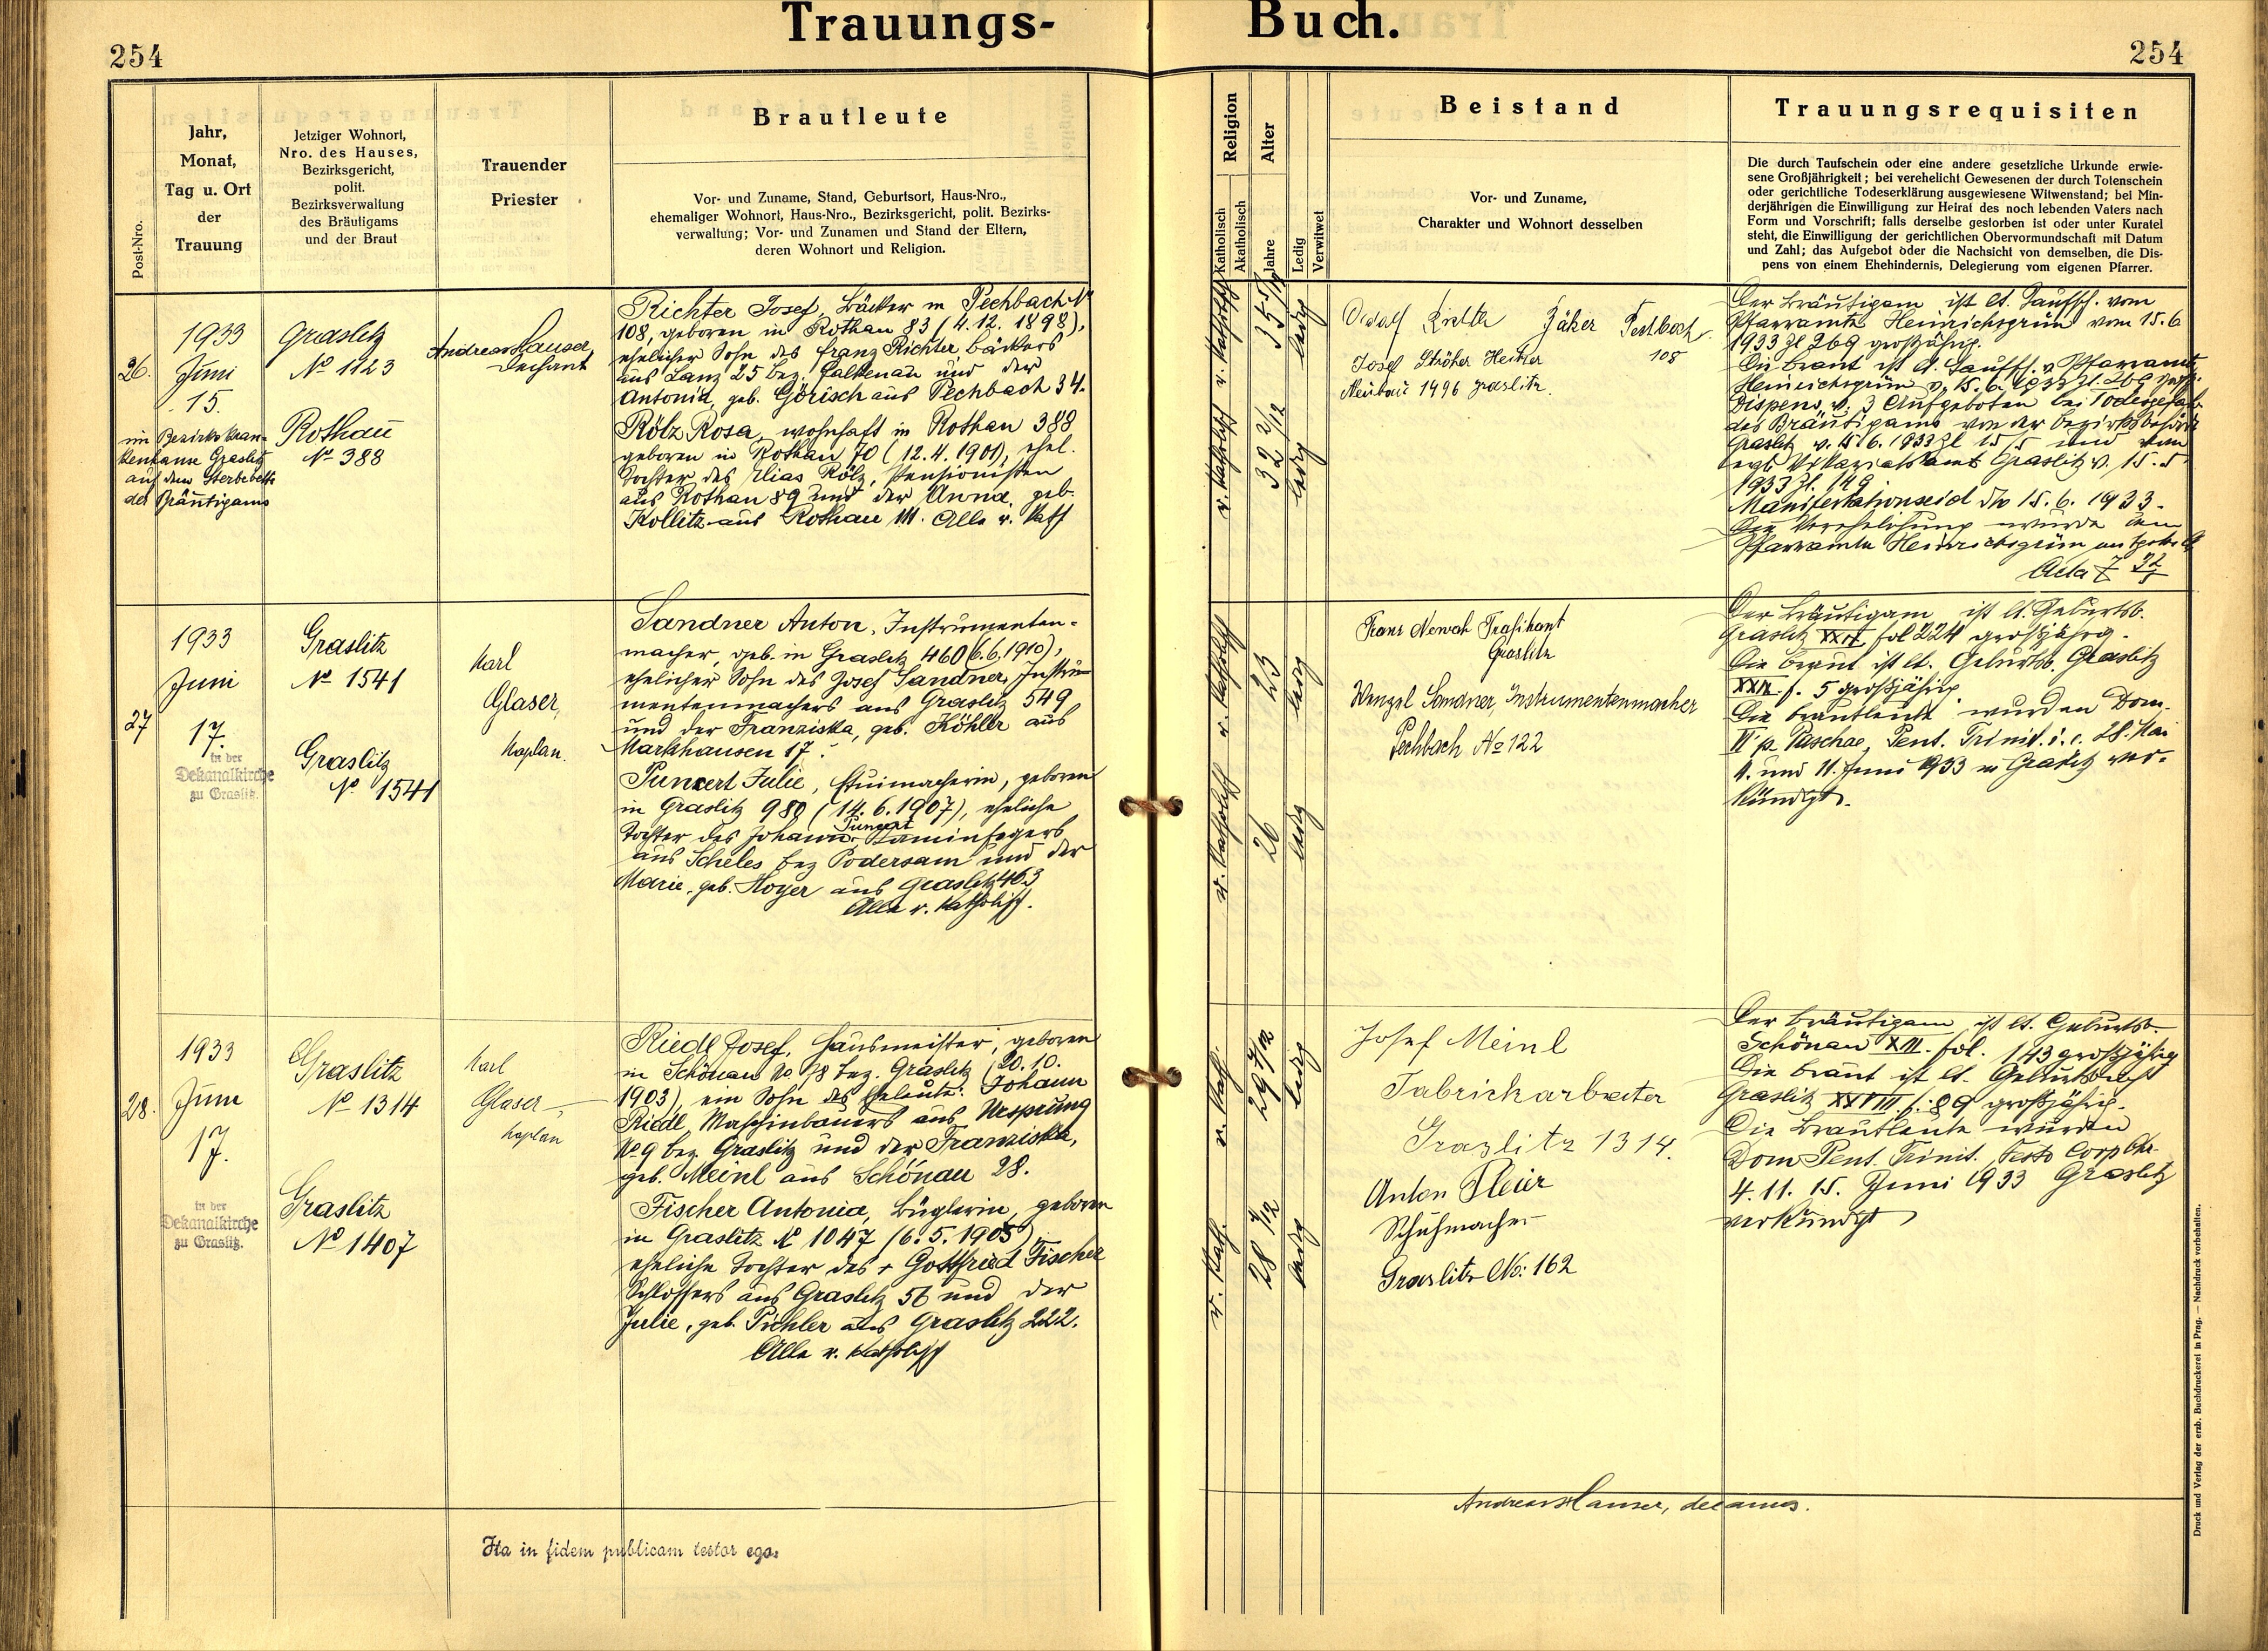 Trauungs-
Buch.
254
254
Post-Nro.
Jahr,
Monat,
Tag u. Ort
der
Trauung
Jetziger Wohnort,
Nro. des Hauses,
Bezirksgericht,
polit.
Bezirksverwaltung
des Bräutigams
und der Braut
Trauender
Priester
Brautleute
Vor- und Zuname, Stand, Geburtsort, Haus-Nro.,
ehemaliger Wohnort, Haus-Nro., Bezirksgericht, polit. Bezirks-
verwaltung; Vor- und Zunamen und Stand der Eltern,
deren Wohnort und Religion.
Religion
Katholisch
Akatholisch
Alter
Jahre
Ledig
Verwitwet
Beistand
Vor- und Zuname,
Charakter und Wohnort desselben
Trauungsrequisiten
Die durch Taufschein oder eine andere gesetzliche Urkunde erwie-
sene Großjährigkeit; bei verehelicht Gewesenen der durch Totenschein
oder gerichtliche Todeserklärung ausgewiesene Witwenstand; bei Min-
derjährigen die Einwilligung zur Heirat des noch lebenden Vaters nach
Form und Vorschrift; falls derselbe gestorben ist oder unter Kuratel
steht, die Einwilligung der gerichtlichen Obervormundschaft mit Datum
und Zahl; das Aufgebot oder die Nachsicht von demselben, die Dis-
pens von einem Ehehindernis, Delegierung vom eigenen Pfarrer.
26.
1933
Juni
15.
im Bezirkskran-
kenhause Graslitz
auf dem Sterbebette
des Bräutigams
Graslitz
No 1123
Rothau
No 388
Andreas Hauser,
Dechant
Richter Josef, Bäcker in Pechbach No
108, geboren in Rothau 83 (4.12.1898),
ehelicher Sohn des Franz Richter, Bäckers
aus Lanz 25 Bez. Falkenau und der
Antonia, geb. Görisch aus Pechbach 34.
Rölz Rosa, wohnhaft in Rothau 388
geboren in Rothau 70 (12.4.1901), ehel.
Tochter des Elias Rölz, Pensionisten
aus Rothau 89 und der Anna, geb.
Kollitz aus Rothau 111. Alle r. kath
r. katholisch
ledig
r. katholisch
32 2/12
ledig
108
Josef Ströher Heitzer
Neubau 1496 Graslitz.
Der Bräutigam ist lt. Taufsch. vom
Pfarramte Heinrichsgrün vom 15.6
1933 Zl 269 großjährig.
Die Braut ist lt. Taufsch. v. Pfarramte
Heinrichsgrün v. 15.6. 1933 Zl.
Dispens v. 3 Aufgeboten bei Todesgefahr
des Bräutigams von der Bezirksbehörde
Graslitz v. 15.6.1933 Zl und vom
Vikariatsamt Graslitz v. 15.
1933 Zl. 149
Manifestationseid dto 15.6.1933.
Die Verehelichung wurde dem
Pfarramte Heinrichsgrün
27
1933
Juni
17.
in der
Dekanalkirche
zu Graslitz.
Graslitz
No 1541
Graslitz
No 1541
Karl
Glaser,
Kaplan.
Sandner Anton, Instrumenten-
macher, geb. in Graslitz 460 (6.6.1910),
ehelicher Sohn des Josef Sandner, Instru-
mentenmachers aus Graslitz 549
und der Franziska, geb. Köhler aus
Markhausen 17.
Punzert Julie, Etuimacherin, geboren
in Graslitz 980 (14.6.1907), eheliche
Tochter des Johann Kaminfegers
aus Scheles Bez Podersam und der
Marie, geb. Hoyer aus Graslitz 463
Alle r. katholisch.
r. katholisch
23
ledig
r. katholisch
26
ledig
Franz Nowak Trafikant
Graslitz
Wenzel Sandner, Instrumentenmacher
Pechbach No 122
Der Bräutigam ist lt. Geburtsb.
Graslitz fol 224 großjährig.
Die Braut ist lt. Geburtsb. Graslitz
f. 5 großjährig.
Die Brautleute wurden Dom.
VI p. Paschae, Pent. Trinit. i.e. 28. Mai
4. und 11. Juni 1933 in Graslitz ver-
kündigt.
28.
1933
Juni
17.
in der
Dekanalkirche
zu Graslitz.
Graslitz
No 1314
Graslitz
No 1407
Karl
Glaser,
Kaplan
Riedl Josef, Hausmeister, geboren
in Schönau No 78 Bez. Graslitz (20.10.
1903), ein Sohn des Eheleute: Johann
Riedl, Maschinbauers aus Ursprung
No 9 Bez Graslitz und der Franziska,
geb. Meinl aus Schönau 28.
Fischer Antonia, Büglerin, geboren
in Graslitz No 1047 (6.5.1905)
eheliche Tochter des + Gottfried Fischer
Schlossers aus Graslitz 56 und der
Julie, geb. Pichler aus Graslitz 222.
Alle r. katholisch
r. kath.
ledig
r. kath.
28 1/12
ledig
Josef Meinl
Fabrickarbeiter
Graslitz 1314.
Anton Pleier
Schuhmacher
Graslitz No: 162
Der Bräutigam ist lt. Geburtsb.
Schönau XIII. fol. 143 großjährig
Die Braut ist lt. Geburtsbuch
Graslitz XXVIII f. 89 großjährig.
Die Brautleute wurden
Dom Pent. Trinit. Festo Corp Chr.
4. 11. 15. Juni 1933 Graslitz
verkündigt
Ita in fidem publicam testor ego:
Andreas Hauser, decanus.
Druck und Verlag der erzb. Buchdruckerei in Prag. — Nachdruck vorbehalten.